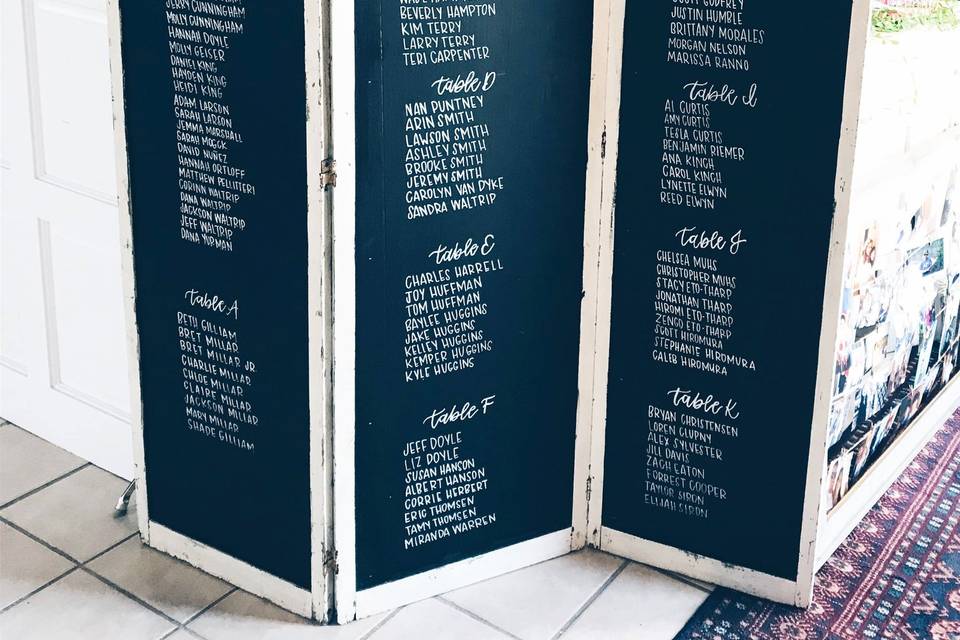 JERRY CUNNINGHAM
MOLLY CUNNINGHAM
HANNAH DOYLE
MOLLY GEISER
DANIEL KING
HAYDEN KING
HEIDI KING
ADAM LARSON
SARAH LARSON
JEMMA MARSHALL
SARAH MOGCK
DAVID NUÑEZ
HANNAH ORTLOFF
MATTHEW PELLITERI
CORINN WALTRIP
DANA WALTRIP
JACKSON WALTRIP
JEFF WALTRIP
DANA YUPMAN
table A
BETH GILLIAM
BRET MILLAR
BRET MILLAR JR.
CHARLIE MILLAR
CHLOE MILLAR
CLAIRE MILLAR
JACKSON MILLAR
MARY MILLAR
SHADE GILLIAM
WADE HAMPTON
BEVERLY HAMPTON
KIM TERRY
LARRY TERRY
TERI CARPENTER
table D
NAN PUNTNEY
ARIN SMITH
LAWSON SMITH
ASHLEY SMITH
BROOKE SMITH
JEREMY SMITH
CAROLYN VAN DYKE
SANDRA WALTRIP
table E
CHARLES HARRELL
JOY HUFFMAN
TOM HUFFMAN
BAYLEE HUGGINS
JAKE HUGGINS
KELLEY HUGGINS
KEMPER HUGGINS
KYLE HUGGINS
table F
JEFF DOYLE
LIZ DOYLE
SUSAN HANSON
ALBERT HANSON
CORRIE HERBERT
ERIC THOMSEN
TAMY THOMSEN
MIRANDA WARREN
SCOTT GODFREY
JUSTIN HUMBLE
BRITTANY MORALES
MORGAN NELSON
MARISSA RANNO
table I
AL CURTIS
AMY CURTIS
TESLA CURTIS
BENJAMIN RIEMER
ANA KINGH
CAROL KINGH
LYNETTE ELWYN
REED ELWYN
table J
CHELSEA MUHS
CHRISTOPHER MUHS
STACY ETO-THARP
JONATHAN THARP
HIROMI ETO-THARP
ZENGO ETO-THARP
SCOTT HIROMURA
STEPHANIE HIROMURA
CALEB HIROMURA
table K
BRYAN CHRISTENSEN
LOREN CLUPNY
ALEX SYLVESTER
JILL DAVIS
ZACH EATON
FORREST COOPER
TAYLOR SIRON
ELIJAH SIRON